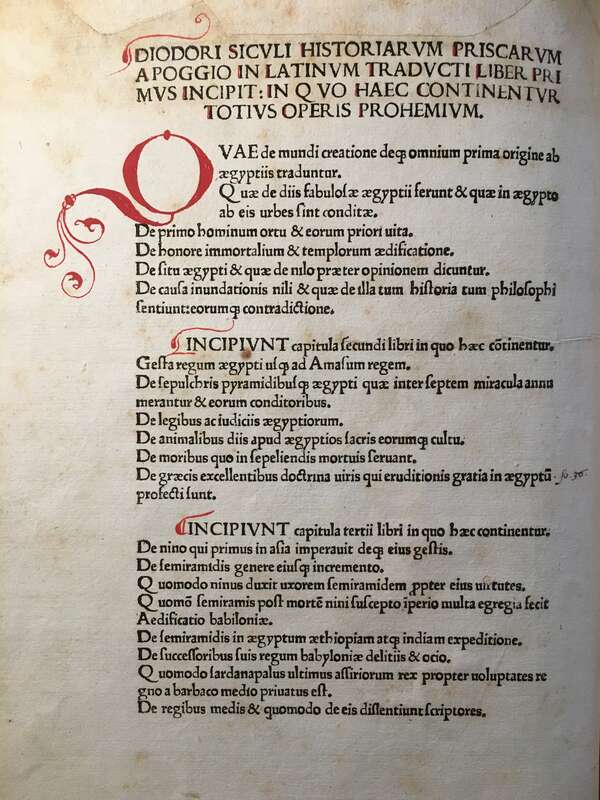 DIODORI SICVLI HISTORIARVM PRISCARVM
A POGGIO IN LATINVM TRADVCTI LIBER PRI
MVS INCIPIT: IN QVO HAEC CONTINENTVR
TOTIVS OPERIS PROHEMIVM.
QVAE de mundi creatione deqꝫ omnium prima origine ab
ægyptiis traduntur.
Quæ de diis fabulosæ ægyptii ferunt & quæ in ægypto
ab eis urbes sint conditæ.
De primo hominum ortu & eorum priori uita.
De honore immortalium & templorum ædificatione.
De situ ægypti & quæ de nilo præter opinionem dicuntur.
De causa inundationis nili & quæ de illa tum historia tum philosophi
sentiunt:eorumqꝫ contradictione.
INCIPIVNT capitula secundi libri in quo hæc cõtinentur.
Gesta regum ægypti usqꝫ ad Amasum regem.
De sepulchris pyramidibusqꝫ ægypti quæ inter septem miracula annu
merantur & eorum conditoribus.
De legibus ac iudiciis ægyptiorum.
De animalibus diis apud ægyptios sacris eorumqꝫ cultu.
De moribus quo in sepeliendis mortuis seruant.
De græcis excellentibus doctrina uiris qui eruditionis gratia in ægyptũ. fo. 36
profecti sunt.
INCIPIVNT capitula tertii libri in quo hæc continentur.
De nino qui primus in asia imperauit deqꝫ eius gestis.
De semiramidis genere eiusqꝫ incremento.
Quomodo ninus duxit uxorem semiramidem ꝓpter eius uirtutes.
Quomõ semiramis post mortẽ nini suscepto ĩperio multa egregia fecit
Aedificatio babiloniæ.
De semiramidis in ægyptum æthiopiam atqꝫ indiam expeditione.
De successoribus suis regum babyloniæ delitiis & ocio.
Quomodo sardanapalus ultimus assiriorum rex propter uoluptates re
gno a barbaco medio priuatus est.
De regibus medis & quomodo de eis dissentiunt scriptores.